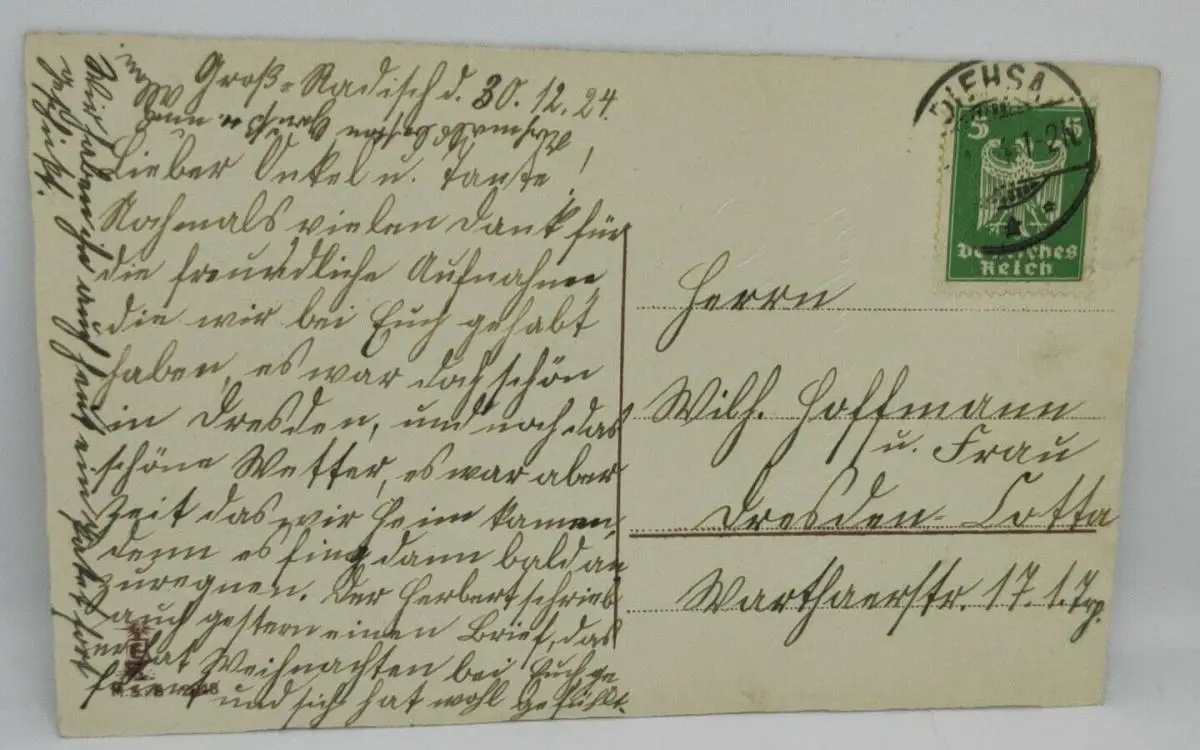 Groß-Radisch d. 30.12.24.
Lieber Onkel u. Tante!
Nochmals vielen Dank für
die freundliche Aufnahme
die wir bei Euch gehabt
haben, es war doch schön
in Dresden, und noch das
schöne Wetter, es war aber
Zeit das wir heim kamen,
denn es fing dann bald an
zu regnen. Der Herbert schrieb
auch gestern einen Brief, das
er hat Weihnachten bei Euch ge
und sich hat wohl gefühlt.
Wir haben ihr auch heut ein
geschickt.
DIEHSA
1-2N
5 5
Deutsches
Reich
Herrn
Wilh. Hoffmann
u. Frau
Dresden-Cotta
Warthaerstr. 17. 1. Trp.